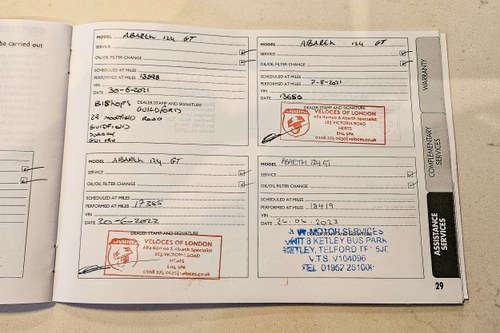 be carried out
MODEL ABARTH 124 GT
SERVICE
OIL/OIL FILTER CHANGE
SCHEDULED AT MILES
PERFORMED AT MILES 13098
VIN
DATE 30-6-2021
DEALER STAMP AND SIGNATURE
BISHOPS GUILDFORD
ROAD
GUILDFORD
MODEL ABARTH 124 GT
SERVICE
OIL/OIL FILTER CHANGE
SCHEDULED AT MILES
PERFORMED AT MILES 7-8-2021
VIN
DATE 13650
DEALER STAMP AND SIGNATURE
VELOCES OF LONDON
Alfa Romeo & Abarth Specialist
153 VICTORIA ROAD
HERTS
EN4 9PB
MODEL ABARTH 124 GT
SERVICE
OIL/OIL FILTER CHANGE
SCHEDULED AT MILES
PERFORMED AT MILES 17385
VIN
DATE 20-6-2022
DEALER STAMP AND SIGNATURE
VELOCES OF LONDON
Alfa Romeo & Abarth Specialist
153 VICTORIA ROAD
HERTS
EN4 9PB
MODEL ABARTH 124 GT
SERVICE
OIL/OIL FILTER CHANGE
SCHEDULED AT MILES
PERFORMED AT MILES 18419
VIN
DATE 26.06.2023
DEALER STAMP AND SIGNATURE
MOTOR SERVICES
UNIT 8 KETLEY BUS PARK
KETLEY, TELFORD
V.T.S. V104096
TEL 01952 251008
WARRANTY
COMPLEMENTARY
SERVICES
ASSISTANCE
SERVICES
29